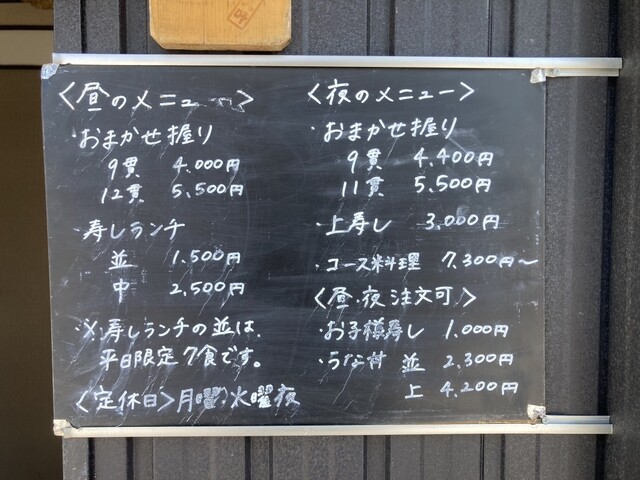 <昼のメニュー>
・おまかせ握り
9貫 4.000円
12貫 5.500円
・寿しランチ
並 1.500円
中 2,500円
・※寿しランチの並は、
平日限定7食です。
<定休日>月曜,火曜夜
<夜のメニュー>
・おまかせ握り
9貫 4.400円
11貫 5.500円
・上寿し 3,000円
・コース料理 7,300円〜
<昼・夜注文可>
・お子様寿し 1,000円
・うな丼 並 2,300円
上 4,200円